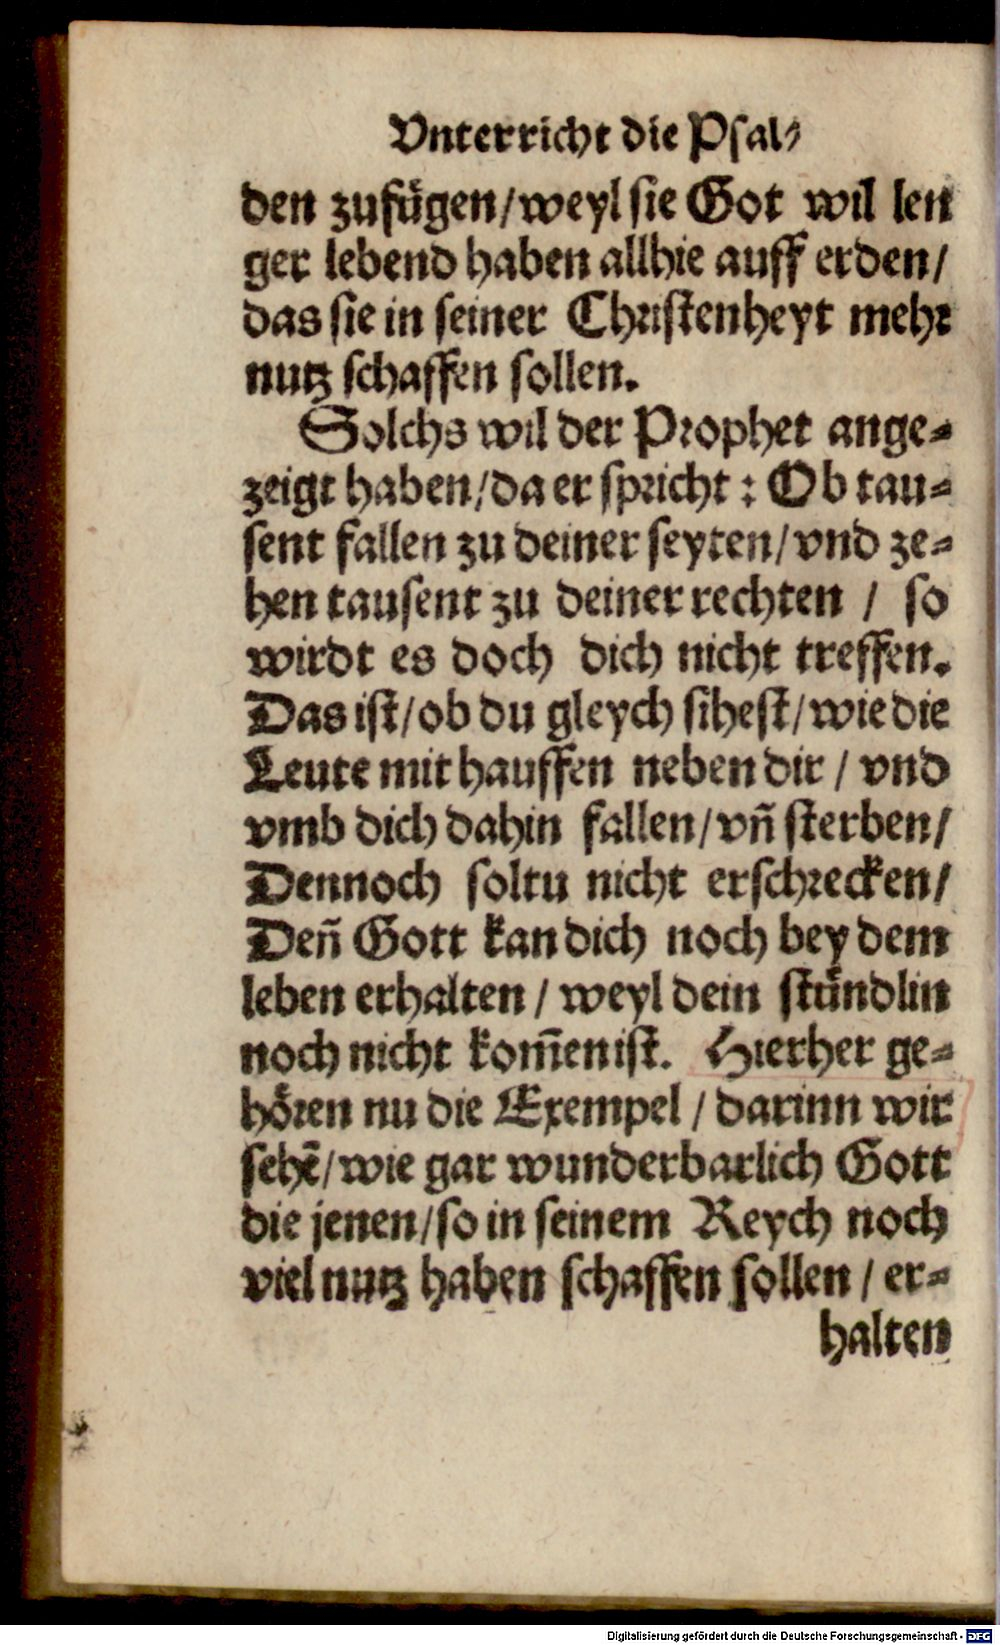 Vnterricht die Psal⸗
den zufuͤgen/weyl sie Got wil len
ger lebend haben allhie auff erden/
das sie in seiner Christenheyt mehr
nutz schaffen sollen.
Solchs wil der Prophet ange⸗
zeigt haben/da er spricht: Ob tau⸗
sent fallen zu deiner seyten/vnd ze⸗
hen tausent zu deiner rechten / so
wirdt es doch dich nicht treffen.
Das ist/ob du gleych sihest/wie die
Leute mit hauffen neben dir / vnd
vmb dich dahin fallen/vñ sterben/
Dennoch soltu nicht erschrecken/
Deñ Gott kan dich noch bey dem
leben erhalten / weyl dein stuͤndlin
noch nicht kom̃en ist. Hierher ge⸗
hoͤren nu die Exempel / darinn wir
sehẽ/wie gar wunderbarlich Gott
die jenen/so in seinem Reych noch
viel nutz haben schaffen sollen / er⸗
halten
Digitalisierung gefördert durch die Deutsche Forschungsgemeinschaft - DFG